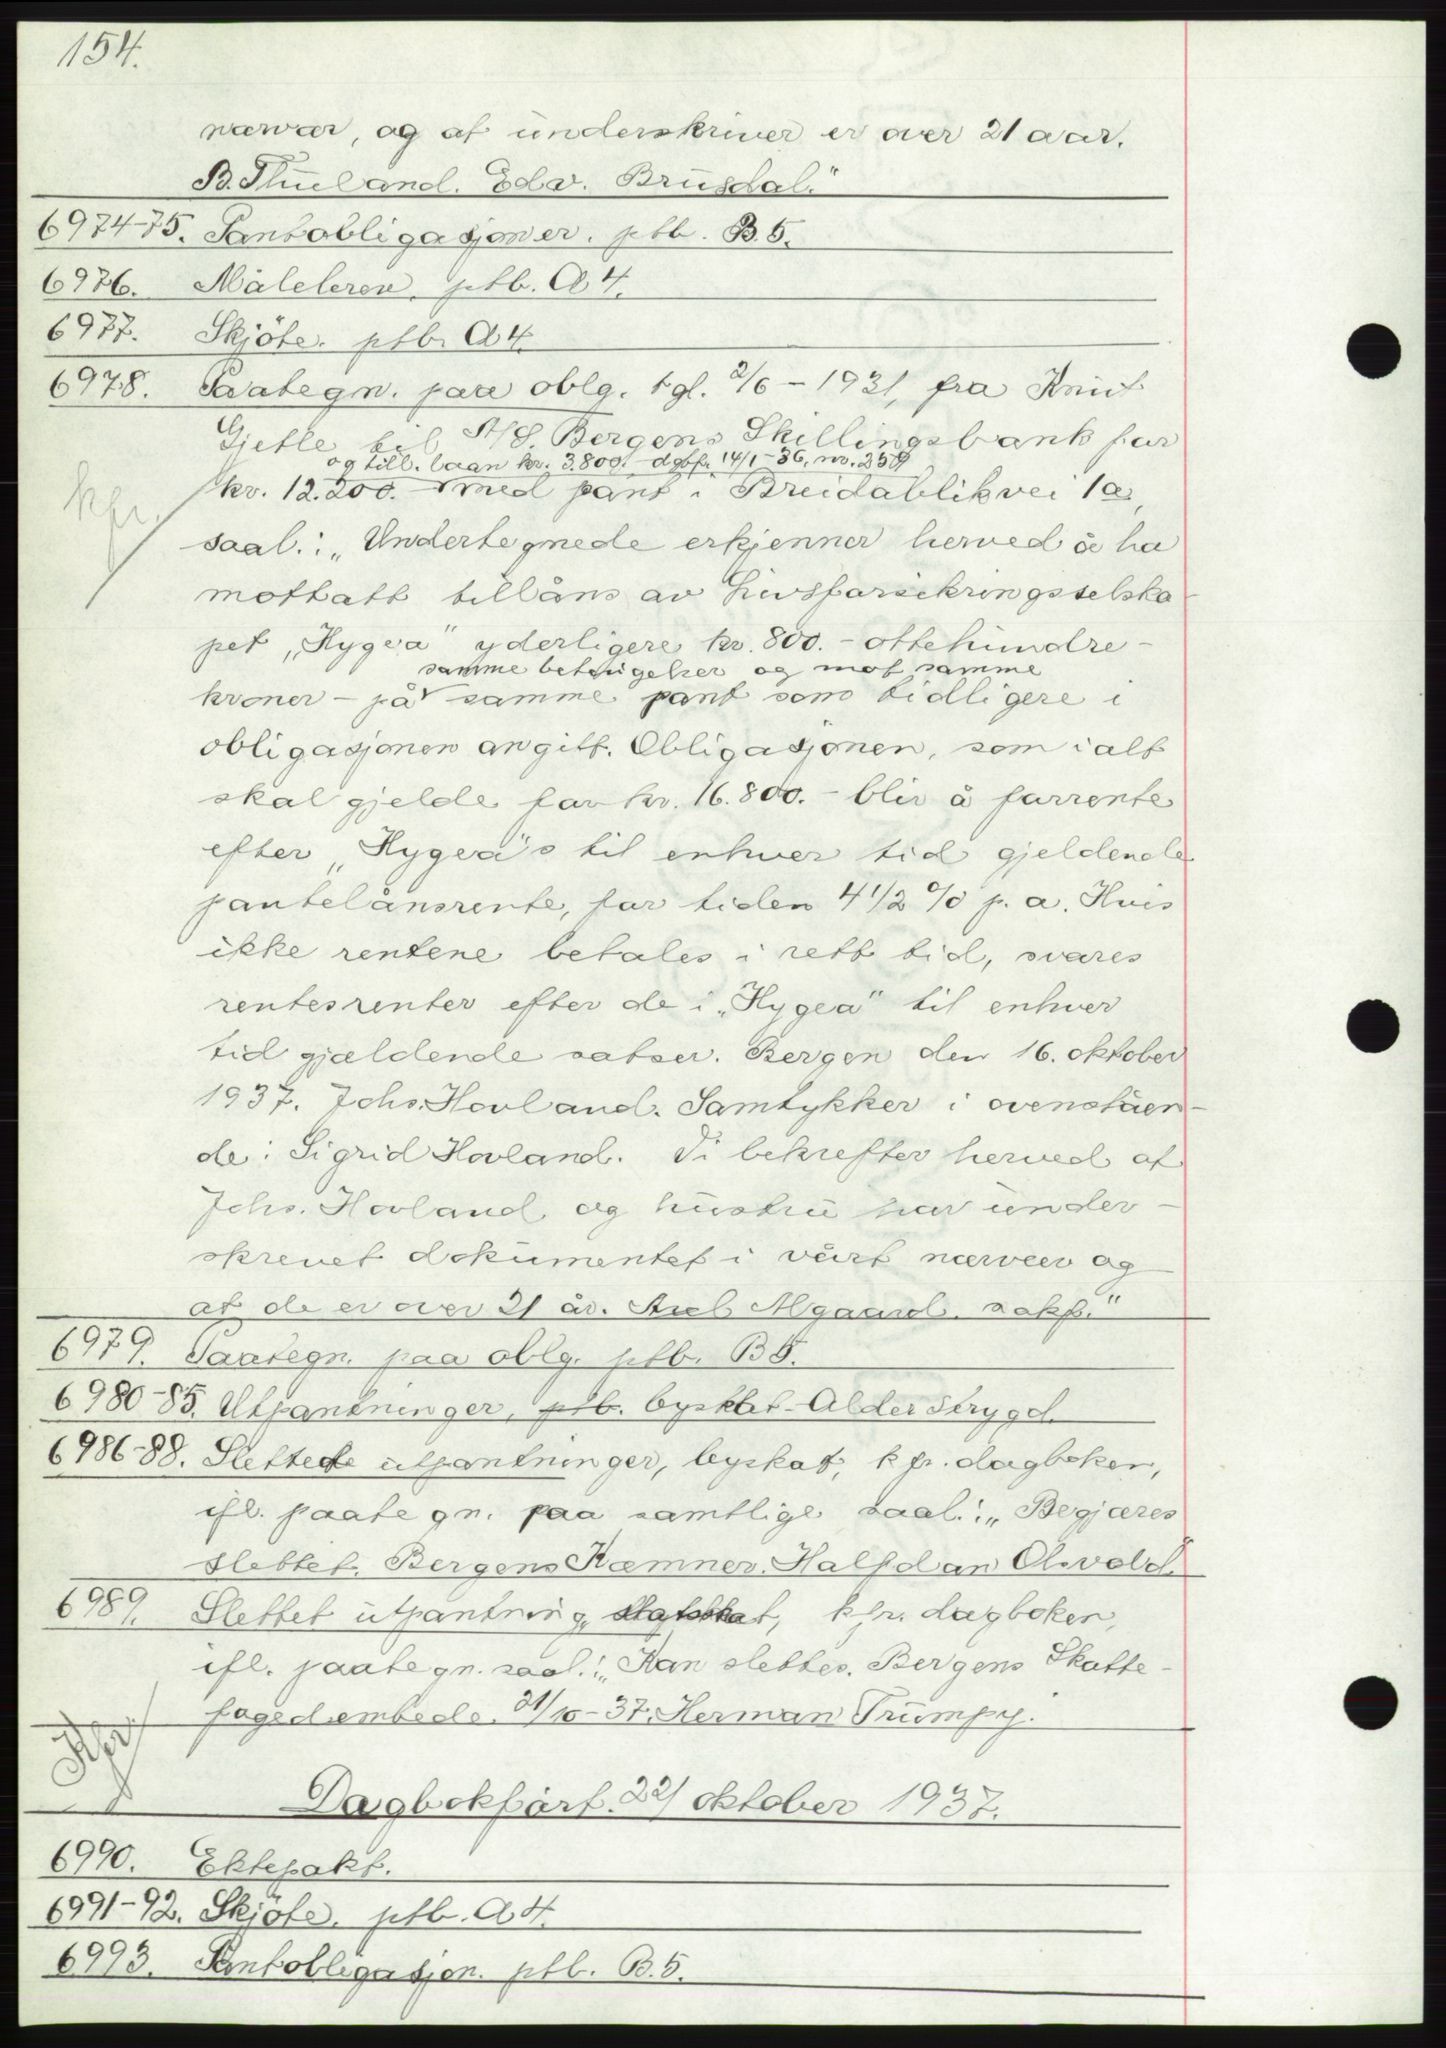 154.
nærvær, og at underskriver er over 21 aar.
B. Thueland. Edv. Brüsdal."
6974-75. Pantobligasjoner. ptb. B.5.
6976. Målebrev, ptb. A 4.
6977. Skjöte. ptb. A 4.
6978. Paategn. paa oblg. tgl. 2/6 - 1931, fra Knut
Gjetle til A/S. Bergens Skillingsbank for
og till. laan kr. 3.800.- dgbf. 14/1-36, nr. 259
kr. 12.200. - med pant i Breidablikvei 1a,
kfr.
saal.: „Undertegnede erkjenner herved å ha
mottatt tillåns av Livsforsikringsselska-
pet „Hygea" yderligere kr. 800.- ottehundre-
samme betingelser og mot samme
kroner - på samme pant som tidligere i
obligasjonen angitt. Obligasjonen, som i alt
skal gjelde for kr. 16.800. - blir å forrente
efter „Hygea"s til enhver tid gjeldende
pantelånsrente, for tiden 4 1/2 % p. a. Hvis
ikke rentene betales i rett tid, svares
rentesrenter efter de i „Hygea" til enhver
tid gjældende satser. Bergen den 16. oktober
1937. Johs. Hovland. Samtykker i ovenståen-
de: Sigrid Hovland. Vi bekrefter herved at
Johs. Hovland og hustru har under-
skrevet dokumentet i vårt nærvær og
at de er over 21 år. Axel Algaard. sakf."
6979. Paategn. paa oblg. ptb. B 5.
6980-85. Utpantninger, ptb. byskat - Alderstrygd.
6986-88. Slettede utpantninger, byskat, kfr. dagboken,
ifl. paategn. paa samtlige saal.: „Begjæres
slettet. Bergens Kæmner. Halfdan Olsvold."
6989. Slettet utpantning, statsskat, kfr. dagboken,
ifl. paategn. saal.: „Kan slettes. Bergens Skatte-
fogedembede. 21/10-37. Herman Trümpy.
Kfr.
Dagbokført. 22/ oktober 1937.
6990. Ektepakt.
6991-92. Skjöte. ptb. A 4.
6993. Pantobligasjon. ptb. B.5.